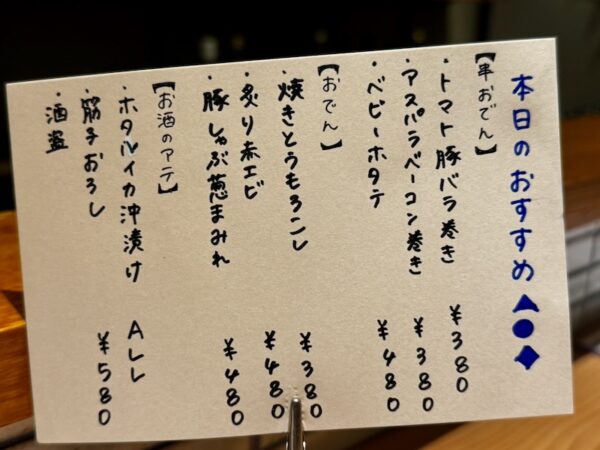 本日のおすすめ▲●◆
【串おでん】
・トマト豚バラ巻き ¥380
・アスパラベーコン巻き ¥380
・ベビーホタテ ¥480
【おでん】
・焼きとうもろこし ¥380
・炙り赤エビ ¥480
・豚しゃぶ葱まみれ ¥480
【お酒のアテ】
・ホタルイカ沖漬け ALL
・筋子おろし ¥580
・酒盗